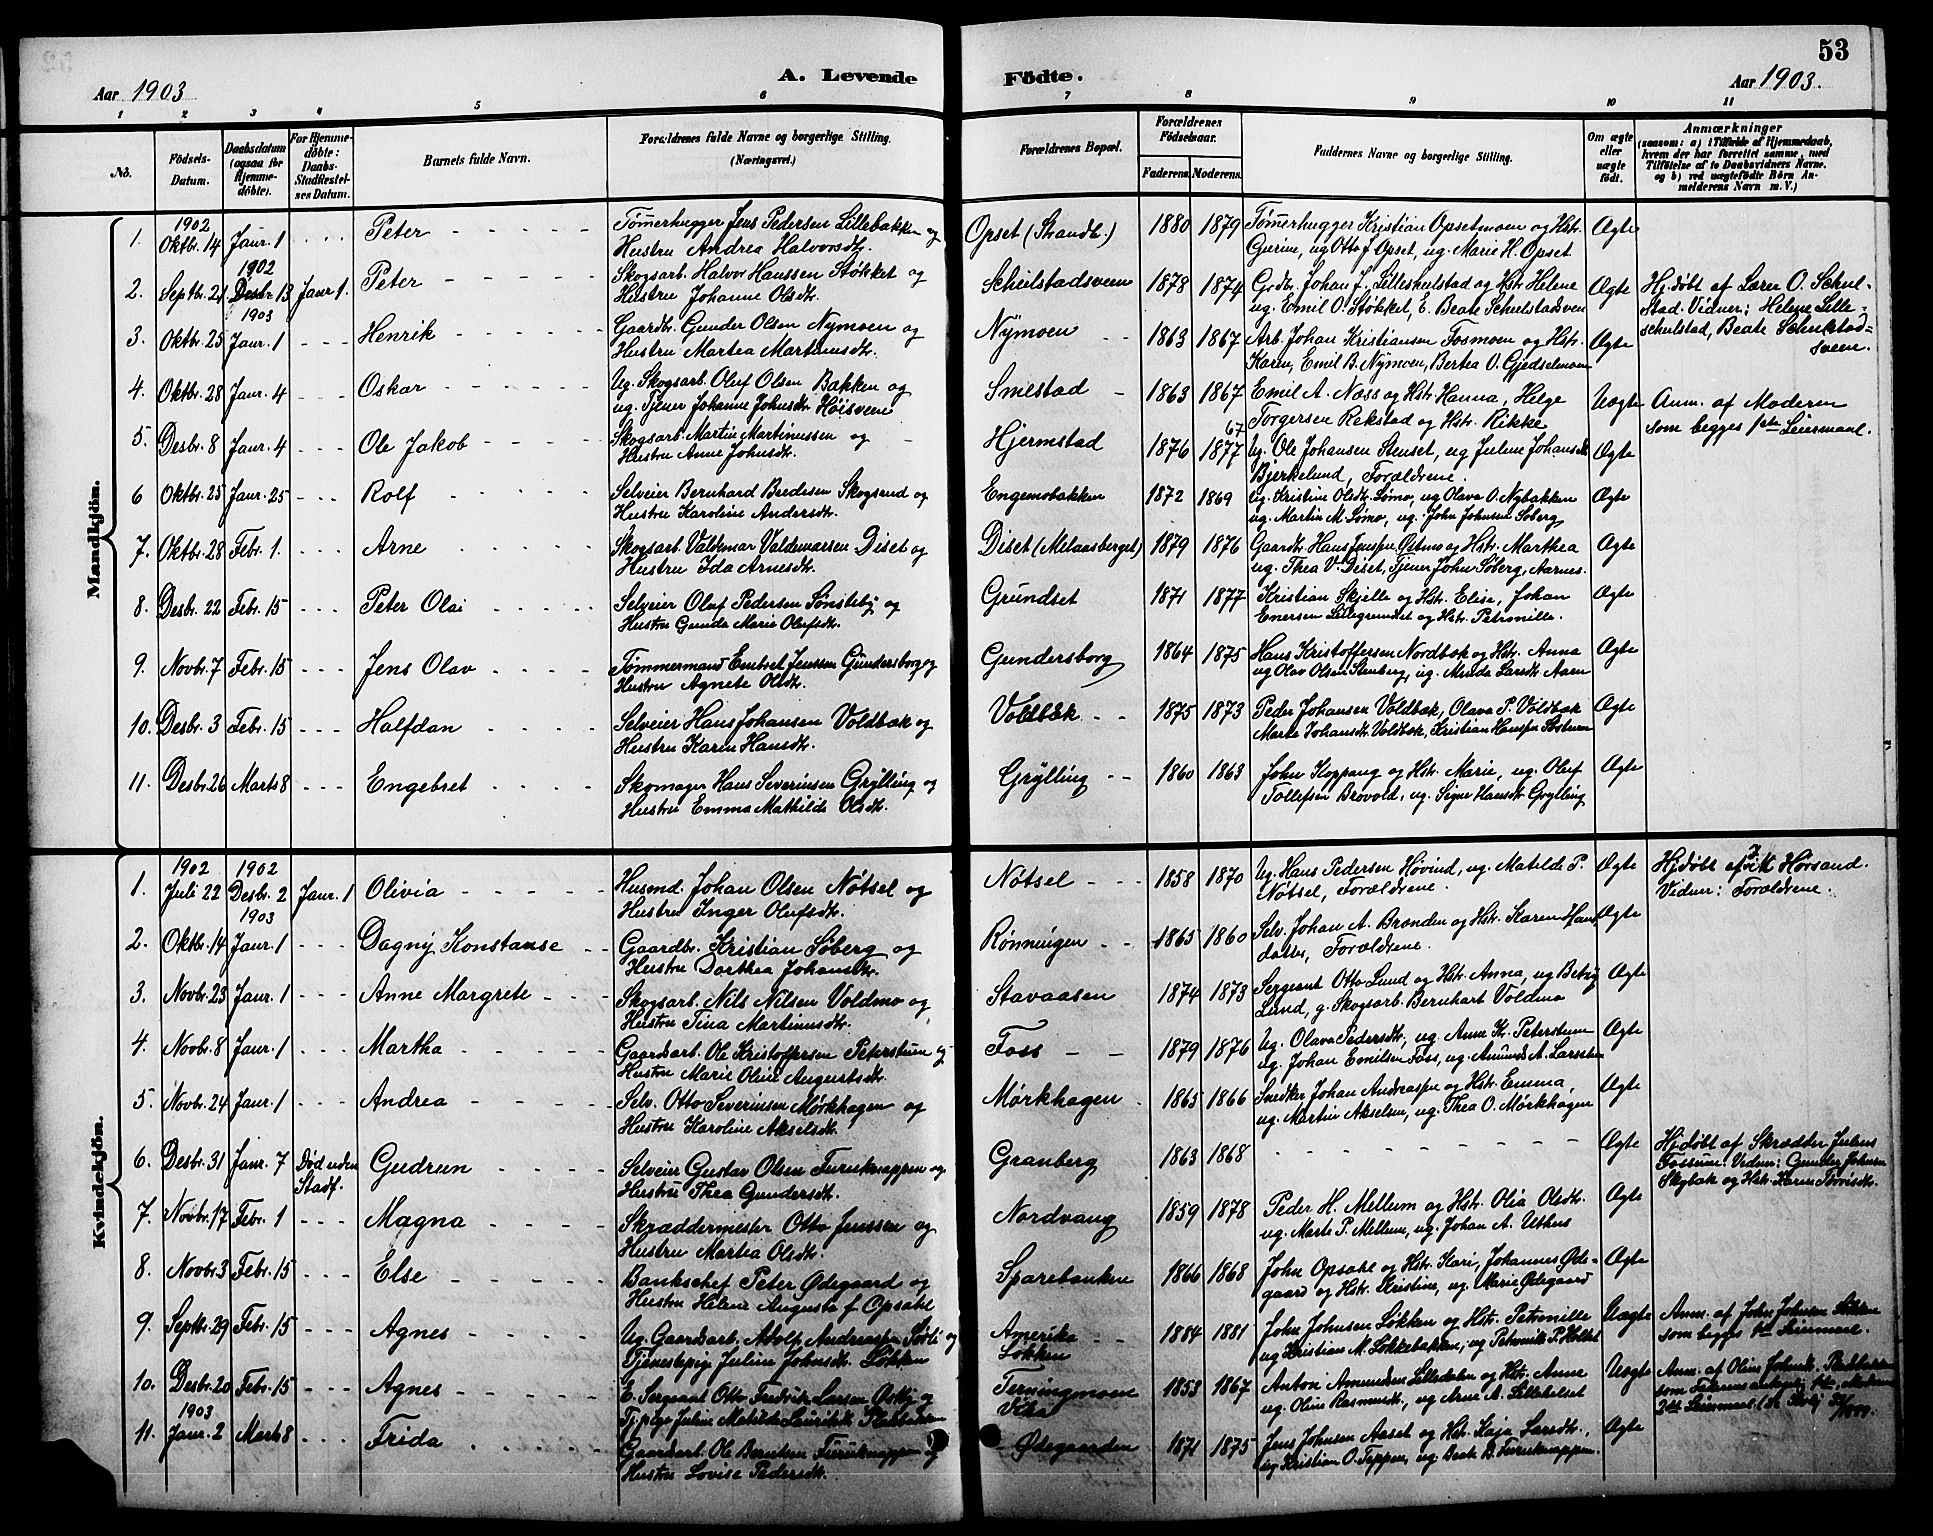 53
Aar 1903
A. Levende
Födte.
Aar 1903.
1 2 3 4 5 6 7 8 9 10 11
No.
Födsels-Datum.
Daabsdatum (ogsaa for Hjemme-döbte).
For Hjemme-döbte: Daabs-Stadfæstel-ses Datum.
Barnets fulde Navn.
Forældrenes fulde Navne og borgerlige Stilling. (Næringsvei.)
Forældrenes Bopæl.
Forældrenes Födselsaar.
Faderens. Moderens.
Faddernes Navne og borgerlige Stilling.
Om ægte eller uægte födt.
Anmærkninger
(saasom: a) i Tilfælde af Hjemmedaab, hvem der har forrettet samme, med Tilföielse af to Daabsvidners Navne. og b) ved uægtefödte Börn An-melderens Navn m. V.)
Mandkjön.
1. 1902 Oktbr. 14 Janr. 1 Peter Tømerhugger Jens Pedersen Lillebakken og
Hustru Andrea Halvorsdtr. Opset (Strandb.) 1880 1879 Tømerhugger Kristian Opsetmoen og Hstr.
Gurine, ug Otto J. Opset, ug. Marie H. Opset Ægte
2. Septbr. 21 1902 Desbr 13 Janr 1. Peter Skogsarb. Halvor Hanssen Støkket og
Hustru Johanne Olsdtr. Schulstadsveen 1878 1874 Grdbr. Johan J. Lilleshulstad og Hstr. Helene
ug. Emil O. Støkket, E. Beate Schulstadsveen Ægte Hj.døbt af Lærer O. Schul-
stad. Vidner: Helene Lille-
schulstad, Beate Schulstad-
sveen.
3. Oktbr. 25 1903 Janr. 1 Henrik Gaardbr. Gunder Olsen Nymoen og
Hustru Martea Martinusdtr. Nymoen 1863 1867 Arb. Johan Kristiansen Fosmoen og Hstr.
Karen, Emil B. Nymoen, Bertea O. Gjedselmoen Ægte
4. Oktbr. 28 Janr. 4 Oskar Ug. Skogsarb. Oluf Olsen Bakken og
ug. Tjener Johanne Johnsdtr. Höisveen Smestad 1863 1867 Emil A. Næss og Hstr. Hanna, Helge
Torgersen Rekstad og Hstr. Rikke Uægte Anm. af Moderen
som begges 1ste Leiermaal.
5. Desbr. 8 Janr. 4 Ole Jakob Skogsarb. Martin Martinussen og
Hustru Anne Johnsdtr. Hjermstad 1876 1877 67 Ug. Ole Johansen Stenset, ug Juline Johansdtr
Bjerkelund, Forældrene. Ægte
6 Oktbr. 25 Janr. 25 Rolf Selveier Bernhard Bredesen Skogsrud og
Hustru Karoline Andersdtr. Engemobakken 1872 1869 Ug. Kristine Olsdtr. Sømo, ug Olava O. Nybakken
ug. Martin M. Sømo, ug. John Johnsen Søberg Ægte
7. Oktbr. 28 Febr. 1. Arne Skogsarb. Valdemar Valdemarsen Diset og
Hustru Ida Arnesdtr. Diset (Melaasberget) 1879 1876 Gaardbr. Hans Jenssen Østmo og Hstr. Marthea
ug. Thea V. Diset, Tjener John Søberg, Aarnes. Ægte
8. Desbr. 22 Febr. 15 Peter Olai Selveier Oluf Pedersen Sønsteby og
Hustru Gunda Marie Olufsdtr. Grundset 1871 1877 Kristian Skjelle og Hstr. Elise, Johan
Enersen Lillegrundset og Hstr. Petronille. Ægte
9. Novbr. 7 Febr. 15 Jens Olav Tømmermand Embret Jenssen Gundersborg og
Hustru Agnete Olsdtr. Gundersborg 1864 1875 Hans Kristoffersen Nordbæk og Hstr. Anna
ug Olav Olsen Stenberg, ug. Minda Larsdtr. Aaen Ægte
10. Desbr. 3 Febr. 15 Halfdan Selveier Hans Johansen Voldbæk og
Hustru Karen Hansdtr. Voldbæk 1875 1873 Peder Johansen Voldbæk, Olava P. Voldbæk
Marte Johansdtr. Voldbæk, Kristian Hanssen Ægte
11. Desbr 26 Marts 8 Engebret Skomager Hans Severinsen Grylling og
Hustru Emma Mathilde Olsdtr. Grylling 1860 1863 John Koppang og Hstr. Marie, ug. Oluf
Tollefsen Brovold, ug. Signe Hansdtr Grylling Ægte
Kvindekjön.
1. 1902 Juli 22 1902 Desbr. 2 Janr. 1 Olivia Husmd. Johan Olsen Nötsel og
Hustru Inger Olufsdtr. Nötsel 1858 1870 Ug. Hans Pedersen Hövind, ug. Matilde P.
Nötsel, Forældrene. Ægte Hj.døbt af Hörsand.
Vidner: Forældrene.
2. Oktbr. 14 1903 Janr. 1 Dagny Konstanse Gaardbr. Kristian Søberg og
Hustru Dorthea Johansdtr. Rønningen 1865 1860 Selv. Johan A. Brænden og Hstr. Karen Hans
datter, Forældrene. Ægte
3. Novbr. 23 Janr. 1 Anne Margrete Skogsarb. Nils Nilsen Voldmo og
Hustru Tina Martinusdtr. Stavaasen 1874 1873 Sergeant Otto Lund og Hstr. Anna, ug Betzy
Lund, g. Skogsarb. Bernhart Voldmo Ægte
4. Novbr. 8 Janr. 1 Martha Gaardsarb. Ole Kristoffersen Peterstuen og
Hustru Marie Oline Augustsdtr. Foss 1879 1876 Ug. Olava Pedersdtr., ug. Anne K. Peterstuen
ug. Johan Emilsen Foss, ug. Amund A. Larsstuen Ægte
5. Novbr. 24 Janr. 1 Andrea Selv. Otto Severinsen Mørkhagen og
Hustru Karoline Akselsdtr. Mørkhagen 1865 1866 Snedker Johan Andreassen og Hstr. Emma,
ug. Martin Akselsen, ug. Thea O. Mørkhagen Ægte
6. Desbr. 31 Janr. 7 Død uden Stadf. Gudrun Selveier Gustav Olsen Furuknappen og
Hustru Thea Gundersdtr. Granberg 1863 1868 Ægte Hj.døbt af Skrædder Julius
Fossum. Vidner: Gunder Johnsen
Skybak og Hstr. Karen
7. Novbr. 17 Febr. 1 Magna Skræddermester Otto Jenssen og
Hustru Martea Olsdtr. Nordvang 1859 1878 Peder H. Mellum og Hstr. Olia Olsdtr.
ug. Marte P. Mellum, ug. Johan A. Uthus Ægte
8. Novbr. 3 Febr. 15 Else Bankschef Peter Ødegaard og
Hustru Helene Augusta f. Opsahl Sparebanken 1866 1868 John Opsahl og Hstr. Kari, Johannes Øde-
gaard og Hstr. Kristine, ug. Marie Ødegaard Ægte
9. Septbr. 29 Febr. 15 Agnes Ug. Gaardsarb. Adolf Andreassen Sörli og
Tjenestepige Juline Johnsdtr. Løkken Amerika
Løkken 1884 1881 John Johnsen Løkken og Hstr. Petronille
ug Kristian M. Løkkebakken, ug Petronille P. Uægte Anm. af John Johnsen Løkken
som begges 1ste Leiermaal.
10. Desbr. 20 Febr. 15 Agnes E. Sergeant Otto Fredrik Larsen Ostby og
Tj.pige Juline Matilde Terningmoen
1853 1867 Anton Amundsen Lilledalen og Hstr. Anne
ug. Oline Rasmusdtr., ug Arne A. Uægte Anm. af Oline
som Faderens 1ste, Moderens
2det Leiermaal
11. 1903 Janr. 2 Marts 8 Frida Gaardsarb. Ole Berntsen Furuknappen og
Hustru Lovise Pedersdtr. Ødegaarden 1871 1875 Jens Johnsen Aaset og Hstr. Kaja Larsdtr.,
ug Kristian O. Teppen, ug. Beate B. Furuknappen. Ægte